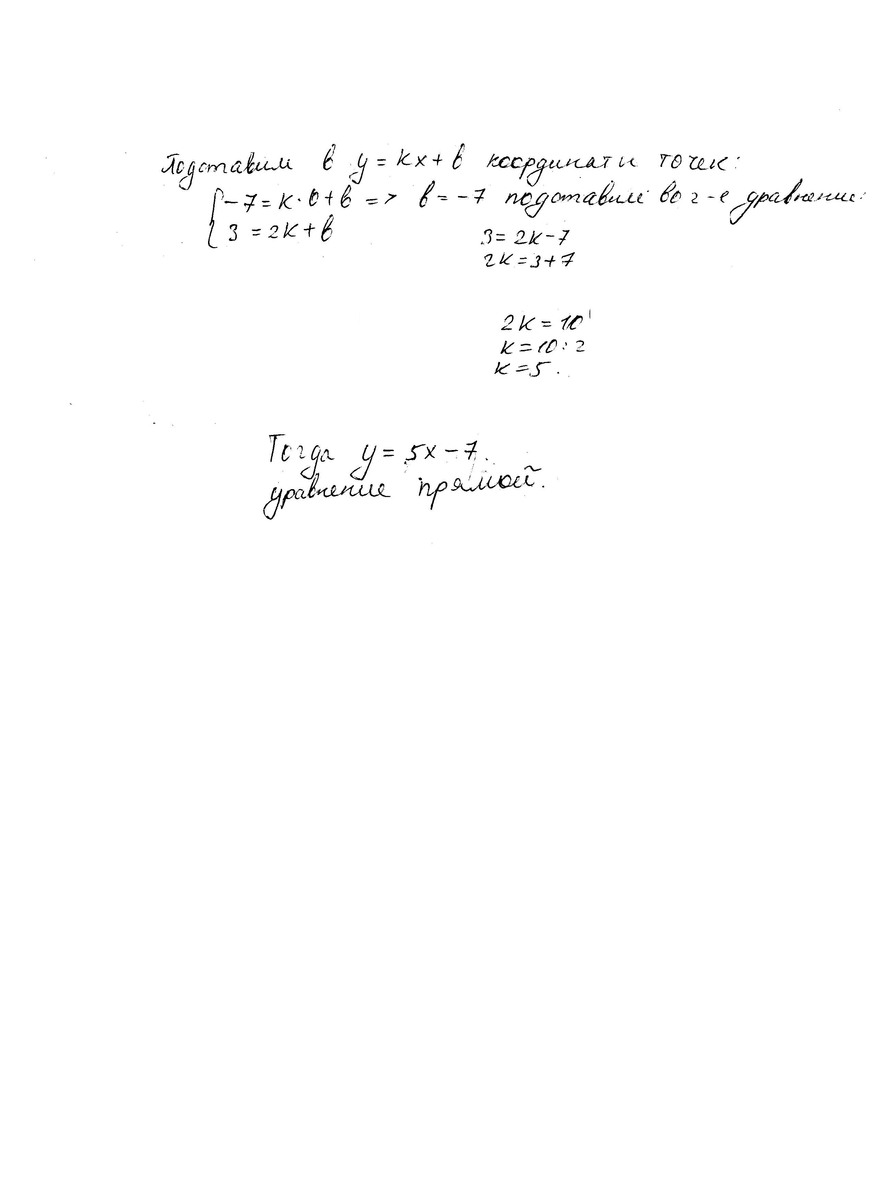 Подставим в y = kx + b координаты точек:
{ -7 = k · 0 + b => b = -7 подставим во 2-е уравнение:
3 = 2k + b 3 = 2k - 7
2k = 3 + 7
2k = 10
k = 10 : 2
k = 5.
Тогда y = 5x - 7.
уравнение прямой.